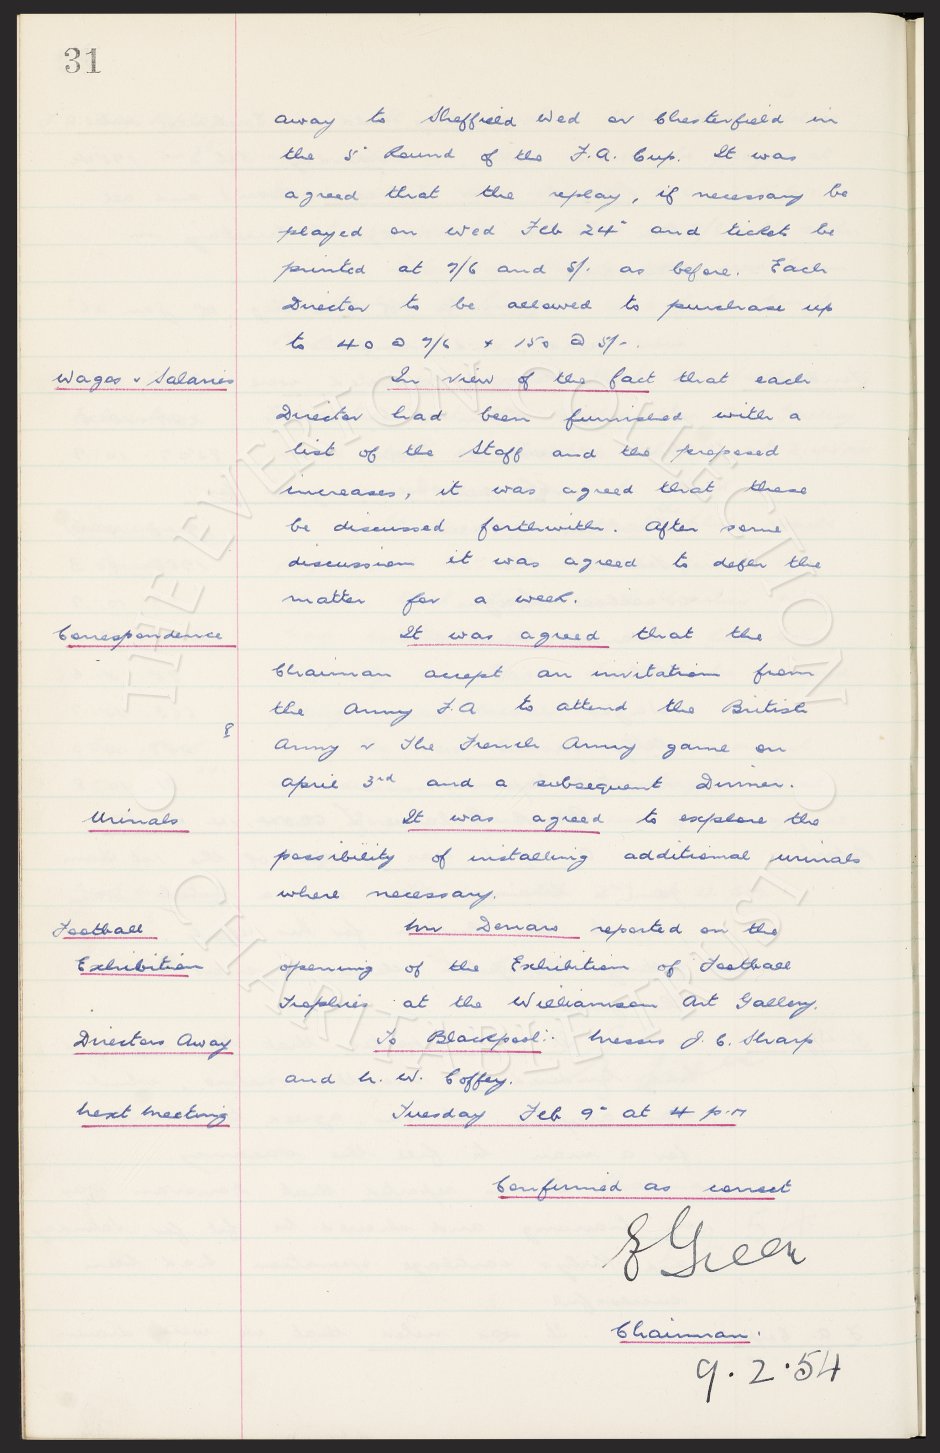 31
away to Sheffield Wed or Chesterfield in
the 5" Round of the F.A. Cup. It was
agreed that the replay, if necessary be
played on Wed Feb 24" and tickets be
printed at 7/6 and 5/- as before. Each
Director to be allowed to purchase up
to 40 @ 7/6 + 150 @ 5/-.
Wages & Salaries In view of the fact that each
Director had been furnished with a
list of the Staff and the proposed
increases, it was agreed that these
be discussed forthwith. After some
discussion it was agreed to defer the
matter for a week.
Correspondence It was agreed that the
Chairman accept an invitation from
the Army F.A to attend the British
Army v The French Army game on
April 3rd and a subsequent Dinner.
Urinals It was agreed to explore the
possibility of installing additional urinals
where necessary.
Football Mr reported on the
Exhibition opening of the Exhibition of Football
Trophies at the Williamson Art Gallery.
Directors Away To Blackpool: Messrs J. C. Sharp
and N. W. Coffey.
Next Meeting Tuesday Feb 9" at 4 p.m
Confirmed as correct
E Green
Chairman.
9.2.54
THE EVERTON COLLECTION
CHARITABLE TRUST